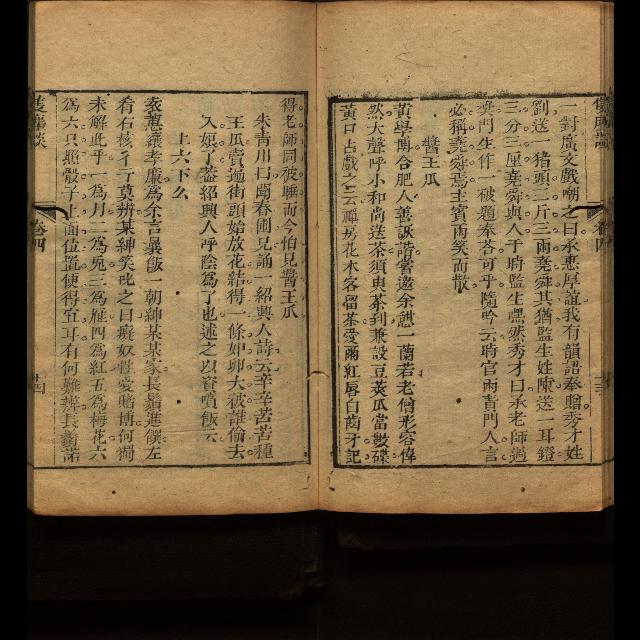 一對廣文戲嘲之曰承惠厚誼我有韻語奉贈秀才姓
劉送一猪頭三斤三兩堯舜其猶監生姓陳送一耳鐙
三分三厘堯舜與人于時監生嘿然秀才曰承老師過
奬門生作一破題奉荅可乎隨吟云時官兩青門人言
必稱堯舜焉主賓兩笑而散
醬王瓜
黃學博合肥人善詼諧嘗邀余憇一蘭若老僧形容偉
然大聲呼小和尚送茶須臾茶到兼設豆莢瓜當數碟
黃口占戲之云禪房花木客留茶愛爾紅唇白齒牙記
得老師同被睡而今怕見醬王瓜
朱青川曰嵩春圃兄誦一紹興人詩云辛辛苦苦種
王瓜賣通街頭始放花結得一條如卵大被誰偷去
入娘了葢紹興人呼陰爲了也述之以資噴飯云
上六下幺
袁蕙纕孝廉爲余言曩飯一朝紳某某家長鬚進饌左
肴右核イ亍莫辨某紳笑叱之曰癡奴性愛賭博何獨
未解此乎一爲月二爲兎三爲雁四爲紅五爲梅花六
爲六只照骰子上面位置便得宜耳有何難辨長鬚諾
卷四
卷四